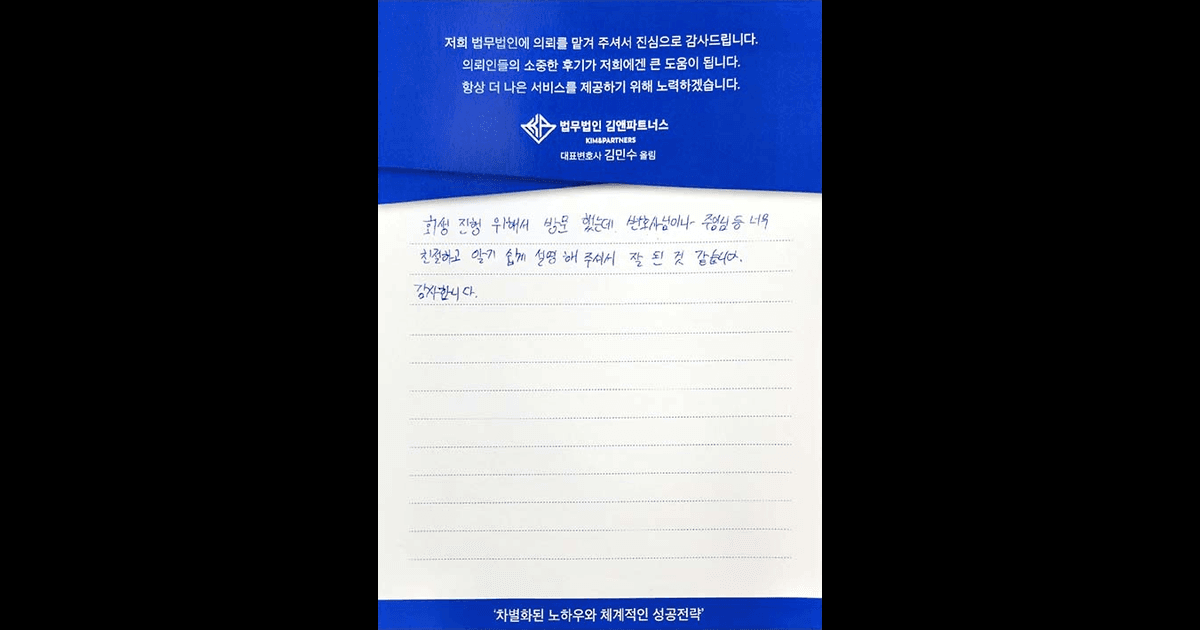 저희 법무법인에 의뢰를 맡겨 주셔서 진심으로 감사드립니다.
의뢰인들의 소중한 후기가 저희에겐 큰 도움이 됩니다.
항상 더 나은 서비스를 제공하기 위해 노력하겠습니다.
법무법인 김앤파트너스
KIM&PARTNERS
대표변호사 김민수 올림
회생 진행 위해서 방문 했는데. 변호사님이나 주영님 등 너무
친절하고 알기 쉽게 설명 해 주셔서 잘 된 것 같습니다.
감사합니다.
'차별화된 노하우와 체계적인 성공전략'